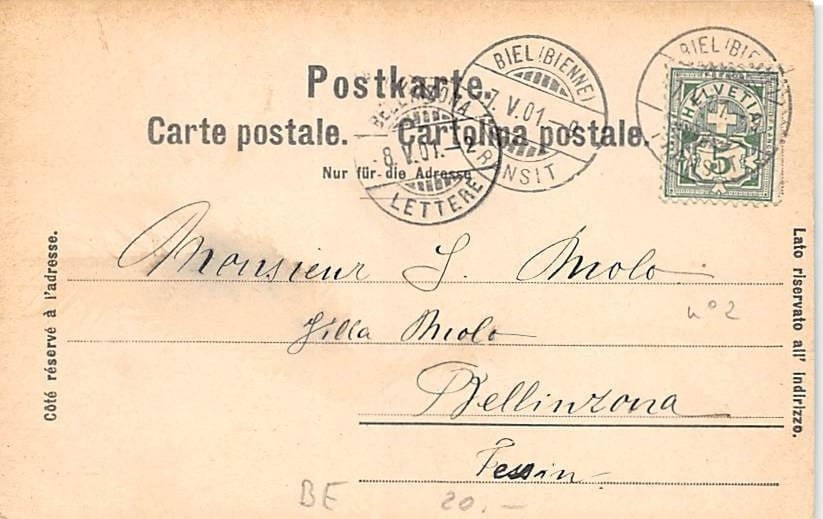 Postkarte.
Carte postale. — Cartolina postale.
Nur für die Adresse.
BIEL (BIENNE)
7. V. 01.
TRANSIT
BELLINZONA
8. V. 01. – 2
LETTERE
BIEL (BIENNE)
HELVETIA
5
Côté réservé à l'adresse.
Lato riservato all' indirizzo.
Monsieur J. Molo
Villa Molo
n° 2
Bellinzona
Tessin
BE 20.–